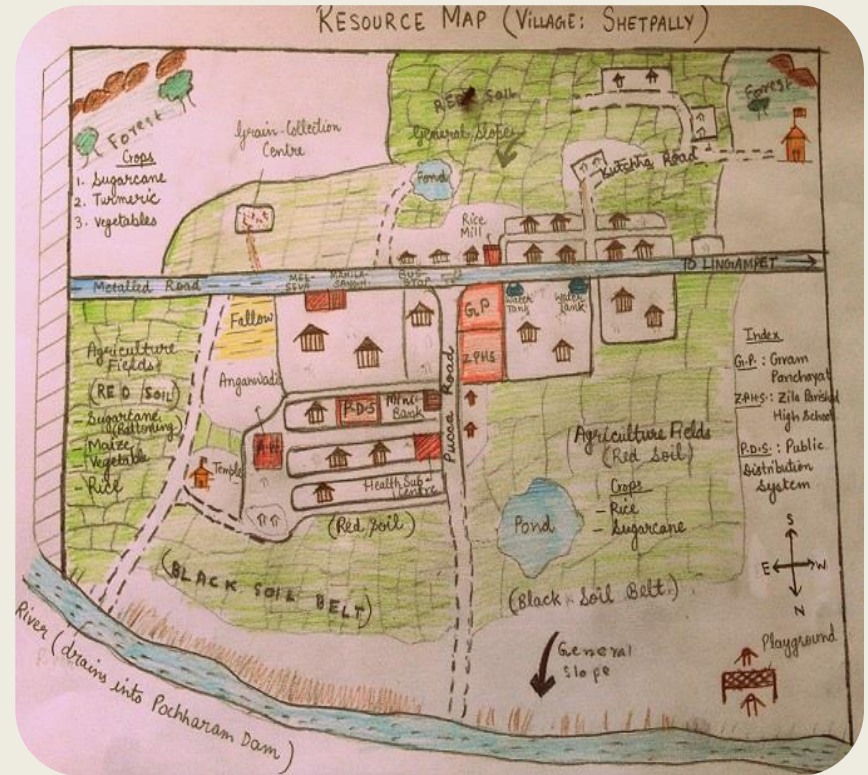 RESOURCE MAP (VILLAGE: SHETPALLY)
Forest
Crops
1. Sugarcane
2. Turmeric
3. Vegetables
Grain-Collection
Centre
RED SOIL
General Slope
Pond
Forest
Kutchha Road
Rice
Mill
Metalled Road
MEE-
SEVA
MAHILA-
SANGH
BUS-
STOP
TO LINGAMPET
Fallow
G.P
Water
Tank
Water
Tank
ZPHS
Pucca Road
Agriculture
Fields
(RED SOIL)
- Sugarcane
- Maize
- Vegetable
- Rice
Anganwadi
P.D.S
Mini
Bank
Temple
Health Sub-
Centre
(Red Soil)
(BLACK SOIL BELT)
Agriculture Fields
(Red Soil)
Crops
- Rice
- Sugarcane
Pond
(Black Soil Belt)
Index
G.P. : Gram
Panchayat
Z.P.H.S. : Zila Parishad
High School
P.D.S. : Public
Distribution
System
S
E
W
N
General
Slope
Playground
River (drains into Pochharam Dam)